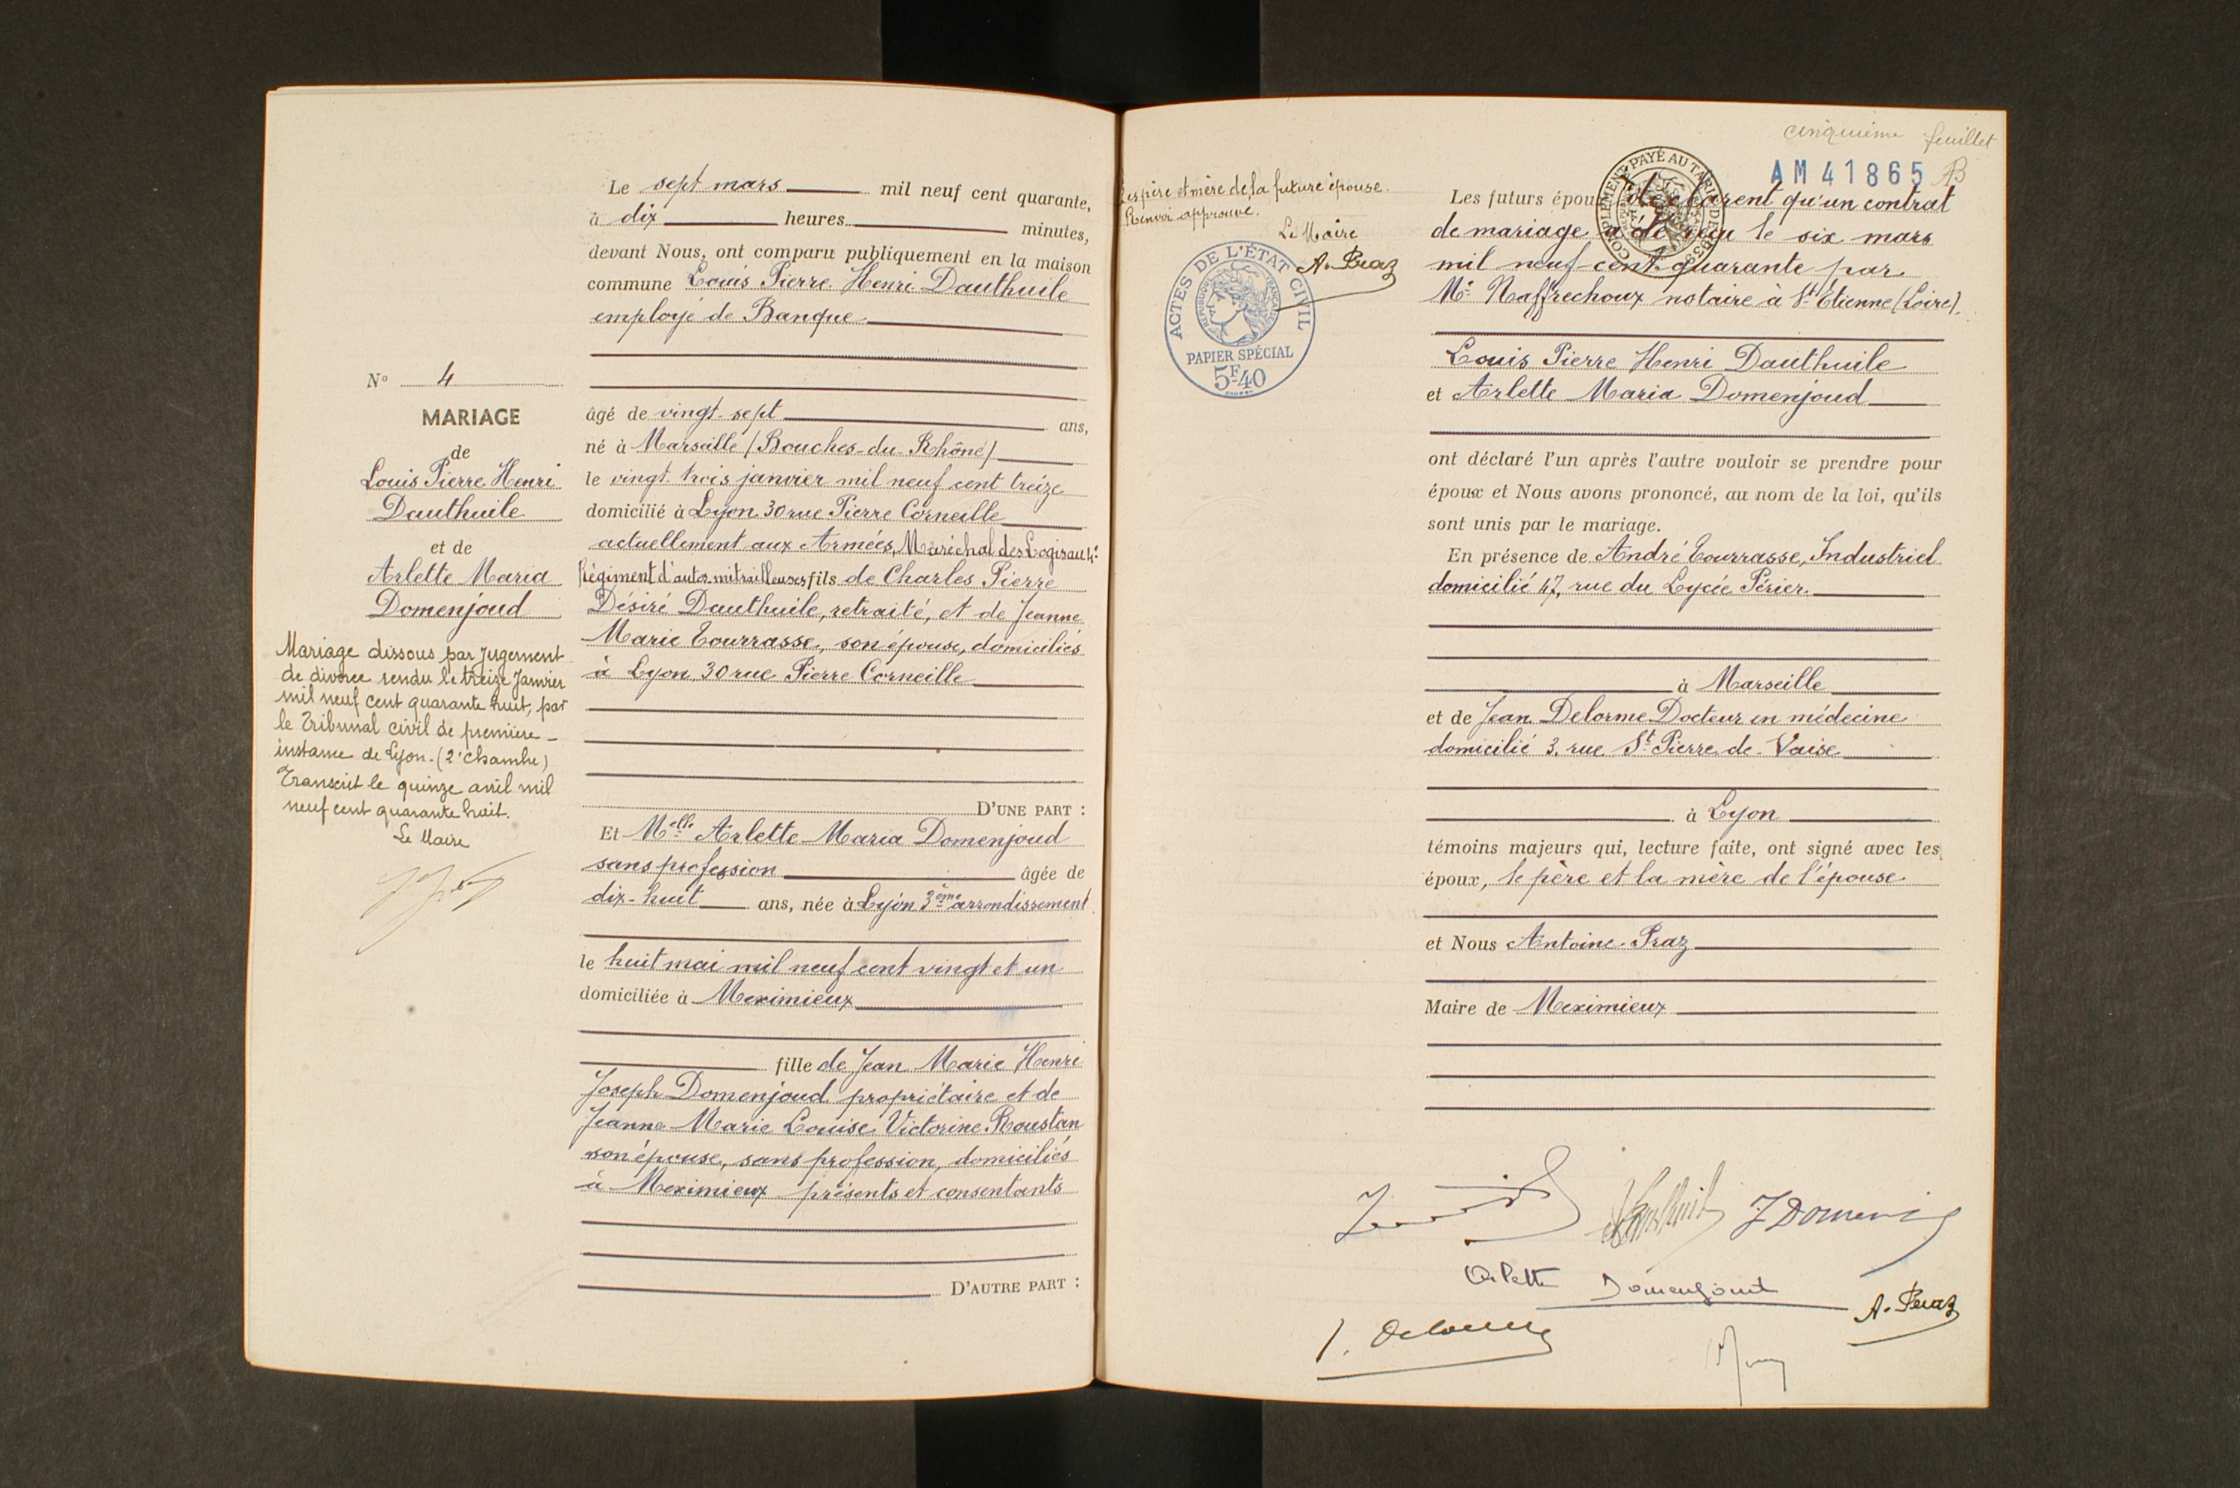 Le sept mars mil neuf cent quarante,
à dix heures minutes,
devant Nous, ont comparu publiquement en la maison
commune Louis Pierre Henri Dauthuile
employé de Banque
âgé de vingt-sept ans,
né à Marseille (Bouches-du-Rhône)
le vingt trois janvier mil neuf cent treize
domicilié à Lyon 30 rue Pierre Corneille
actuellement aux Armées, Maréchal des Logis au 4e
Régiment d'autos mitrailleuses fils de Charles Pierre
Désiré Dauthuile, retraité, et de Jeanne
Marie Tourrasse, son épouse, domiciliés
à Lyon 30 rue Pierre Corneille
D'UNE PART :
Et Melle Arlette Maria Domenjoud
sans profession âgée de
dix-huit ans, née à Lyon 3ème arrondissement
le huit mai mil neuf cent vingt et un
domiciliée à Meximieux
fille de Jean Marie Henri
Joseph Domenjoud propriétaire et de
Jeanne Marie Louise Victorine Roustan
son épouse, sans profession, domiciliés
à Meximieux présents et consentants
D'AUTRE PART :
N° 4
MARIAGE
de
Louis Pierre Henri
Dauthuile
et de
Arlette Maria
Domenjoud
Mariage dissous par Jugement
de divorce rendu le treize Janvier
mil neuf cent quarante huit, par
le Tribunal civil de première
instance de Lyon. (2e chambre)
Transcrit le quinze avril mil
neuf cent quarante huit.
Le Maire
cinquième feuillet
AM 41865 B
Les père et mère de la future épouse.
Renvoi approuvé.
Le Maire
A. Praz
ACTES DE L'ÉTAT CIVIL
PAPIER SPÉCIAL
5F40
COMPLÉMENT PAYÉ AU TARIF DE 1939
Les futurs époux déclarent qu'un contrat
de mariage a été reçu le six mars
mil neuf cent quarante par
Me Naffrechoux notaire à St Etienne (Loire).
Louis Pierre Henri Dauthuile
et Arlette Maria Domenjoud
ont déclaré l'un après l'autre vouloir se prendre pour
époux et Nous avons prononcé, au nom de la loi, qu'ils
sont unis par le mariage.
En présence de André Tourrasse, Industriel
domicilié 47, rue du Lycée Périer.
à Marseille
et de Jean Delorme Docteur en médecine
domicilié 3, rue St Pierre de Vaise
à Lyon
témoins majeurs qui, lecture faite, ont signé avec les
époux, le père et la mère de l'épouse
et Nous Antoine Praz
Maire de Meximieux
Arlette Domenjoud
A. Praz
J. Delorme